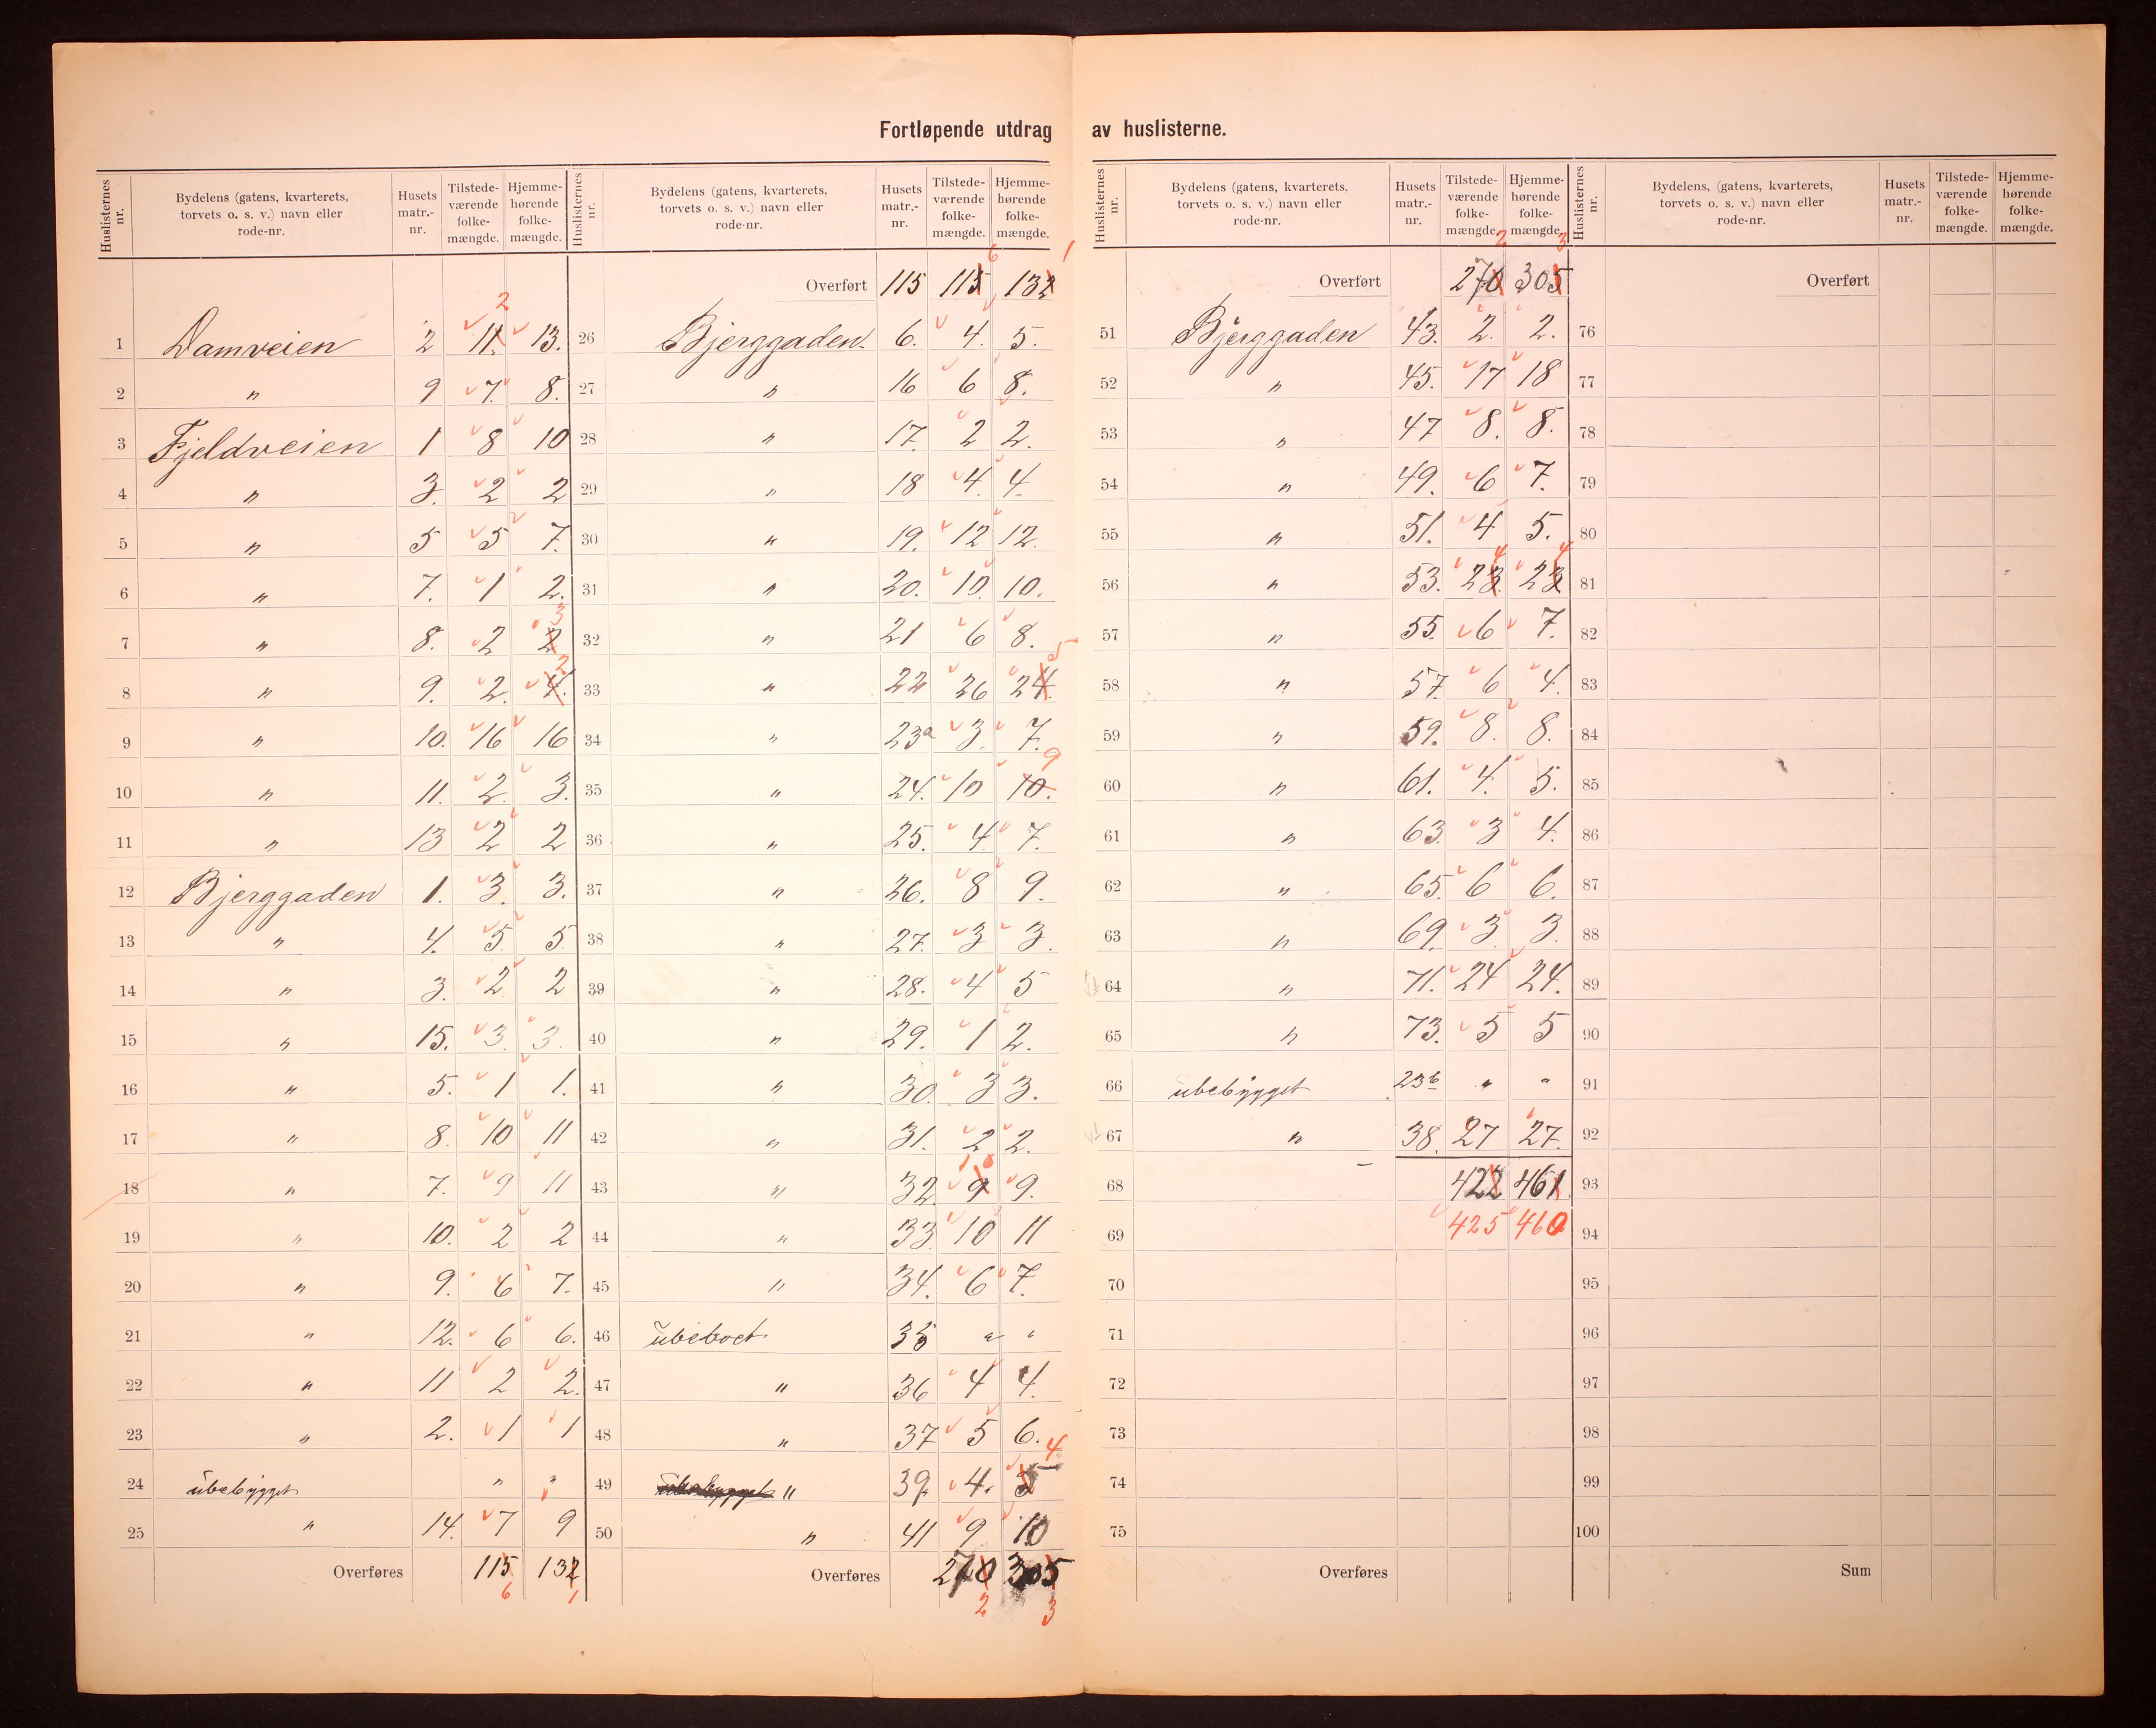 Fortløpende utdrag av huslisterne.
Huslisternes nr. Bydelens (gatens, kvarterets, torvets o. s. v.) navn eller rode-nr. Husets matr.-nr. Tilstede-værende folke-mængde. Hjemme-hørende folke-mængde.
2
1 Damveien 2 11. 13.
2 " 9 7. 8.
3 Fjeldveien 1 8 10
4 " 3. 2 2
5 " 5 5 7.
6 " 7. 1 2.
7 " 8. 2 2 3
8 " 9. 2. 4. 2
9 " 10. 16 16
10 " 11. 2. 3.
11 " 13 2 2
12 Bjerggaden 1. 3. 3.
13 " 4. 5. 5
14 " 3. 2 2
15 " 15. 3. 3.
16 " 5. 1 1.
17 " 8. 10 11
18 " 7. 9 11
19 " 10. 2 2
20 " 9. 6 7.
21 " 12. 6 6.
22 " 11 2 2.
23 " 2. 1 1
24 ubebygget " "
25 " 14. 7 9
Overføres 115 132
6 1
Huslisternes nr. Bydelens (gatens, kvarterets, torvets o. s. v.) navn eller rode-nr. Husets matr.-nr. Tilstede-værende folke-mængde. Hjemme-hørende folke-mængde.
6 1
Overført 115 115 132
26 Bjerggaden. 6. 4. 5.
27 " 16 6 8.
28 " 17. 2 2.
29 " 18 4. 4.
30 " 19. 12 12.
31 " 20. 10. 10.
32 " 21 6 8.
33 " 22 26 24. 5
34 " 23a 3. 7.
35 " 24. 10 10. 9
36 " 25. 4 7.
37 " 26. 8 9.
38 " 27. 3 3.
39 " 28. 4 5
40 " 29. 1 2.
41 " 30. 3 3.
42 " 31. 2 2.
43 " 32. 9 10 9.
44 " 33. 10 11
45 " 34. 6 7.
46 ubeboet 35 " "
47 " 36 4 4.
48 " 37 5 6.
49 ubebygget " 39. 4. 5 4
50 " 41 9 10
Overføres 270 305
2 3
Huslisternes nr. Bydelens (gatens, kvarterets, torvets o. s. v.) navn eller rode-nr. Husets matr.-nr. Tilstede-værende folke-mængde. Hjemme-hørende folke-mængde.
2 3
Overført 270 305
51 Bjerggaden 43. 2. 2.
52 " 45. 17 18
53 " 47 8. 8.
54 " 49. 6 7.
55 " 51. 4 5.
56 " 53. 23. 4 23 4
57 " 55. 6 7.
58 " 57. 6 4.
59 " 59. 8. 8.
60 " 61. 4. 5.
61 " 63. 3 4.
62 " 65. 6 6.
63 " 69. 3 3.
64 " 71. 24 24.
65 " 73. 5 5
66 ubebygget 23b " "
67 " 38. 27 27.
68 422 461
69 425 460
70
71
72
73
74
75
Overføres
Huslisternes nr. Bydelens, (gatens, kvarterets, torvets o. s. v.) navn eller rode-nr. Husets matr.-nr. Tilstede-værende folke-mængde. Hjemme-hørende folke-mængde.
Overført
76
77
78
79
80
81
82
83
84
85
86
87
88
89
90
91
92
93
94
95
96
97
98
99
100
Sum